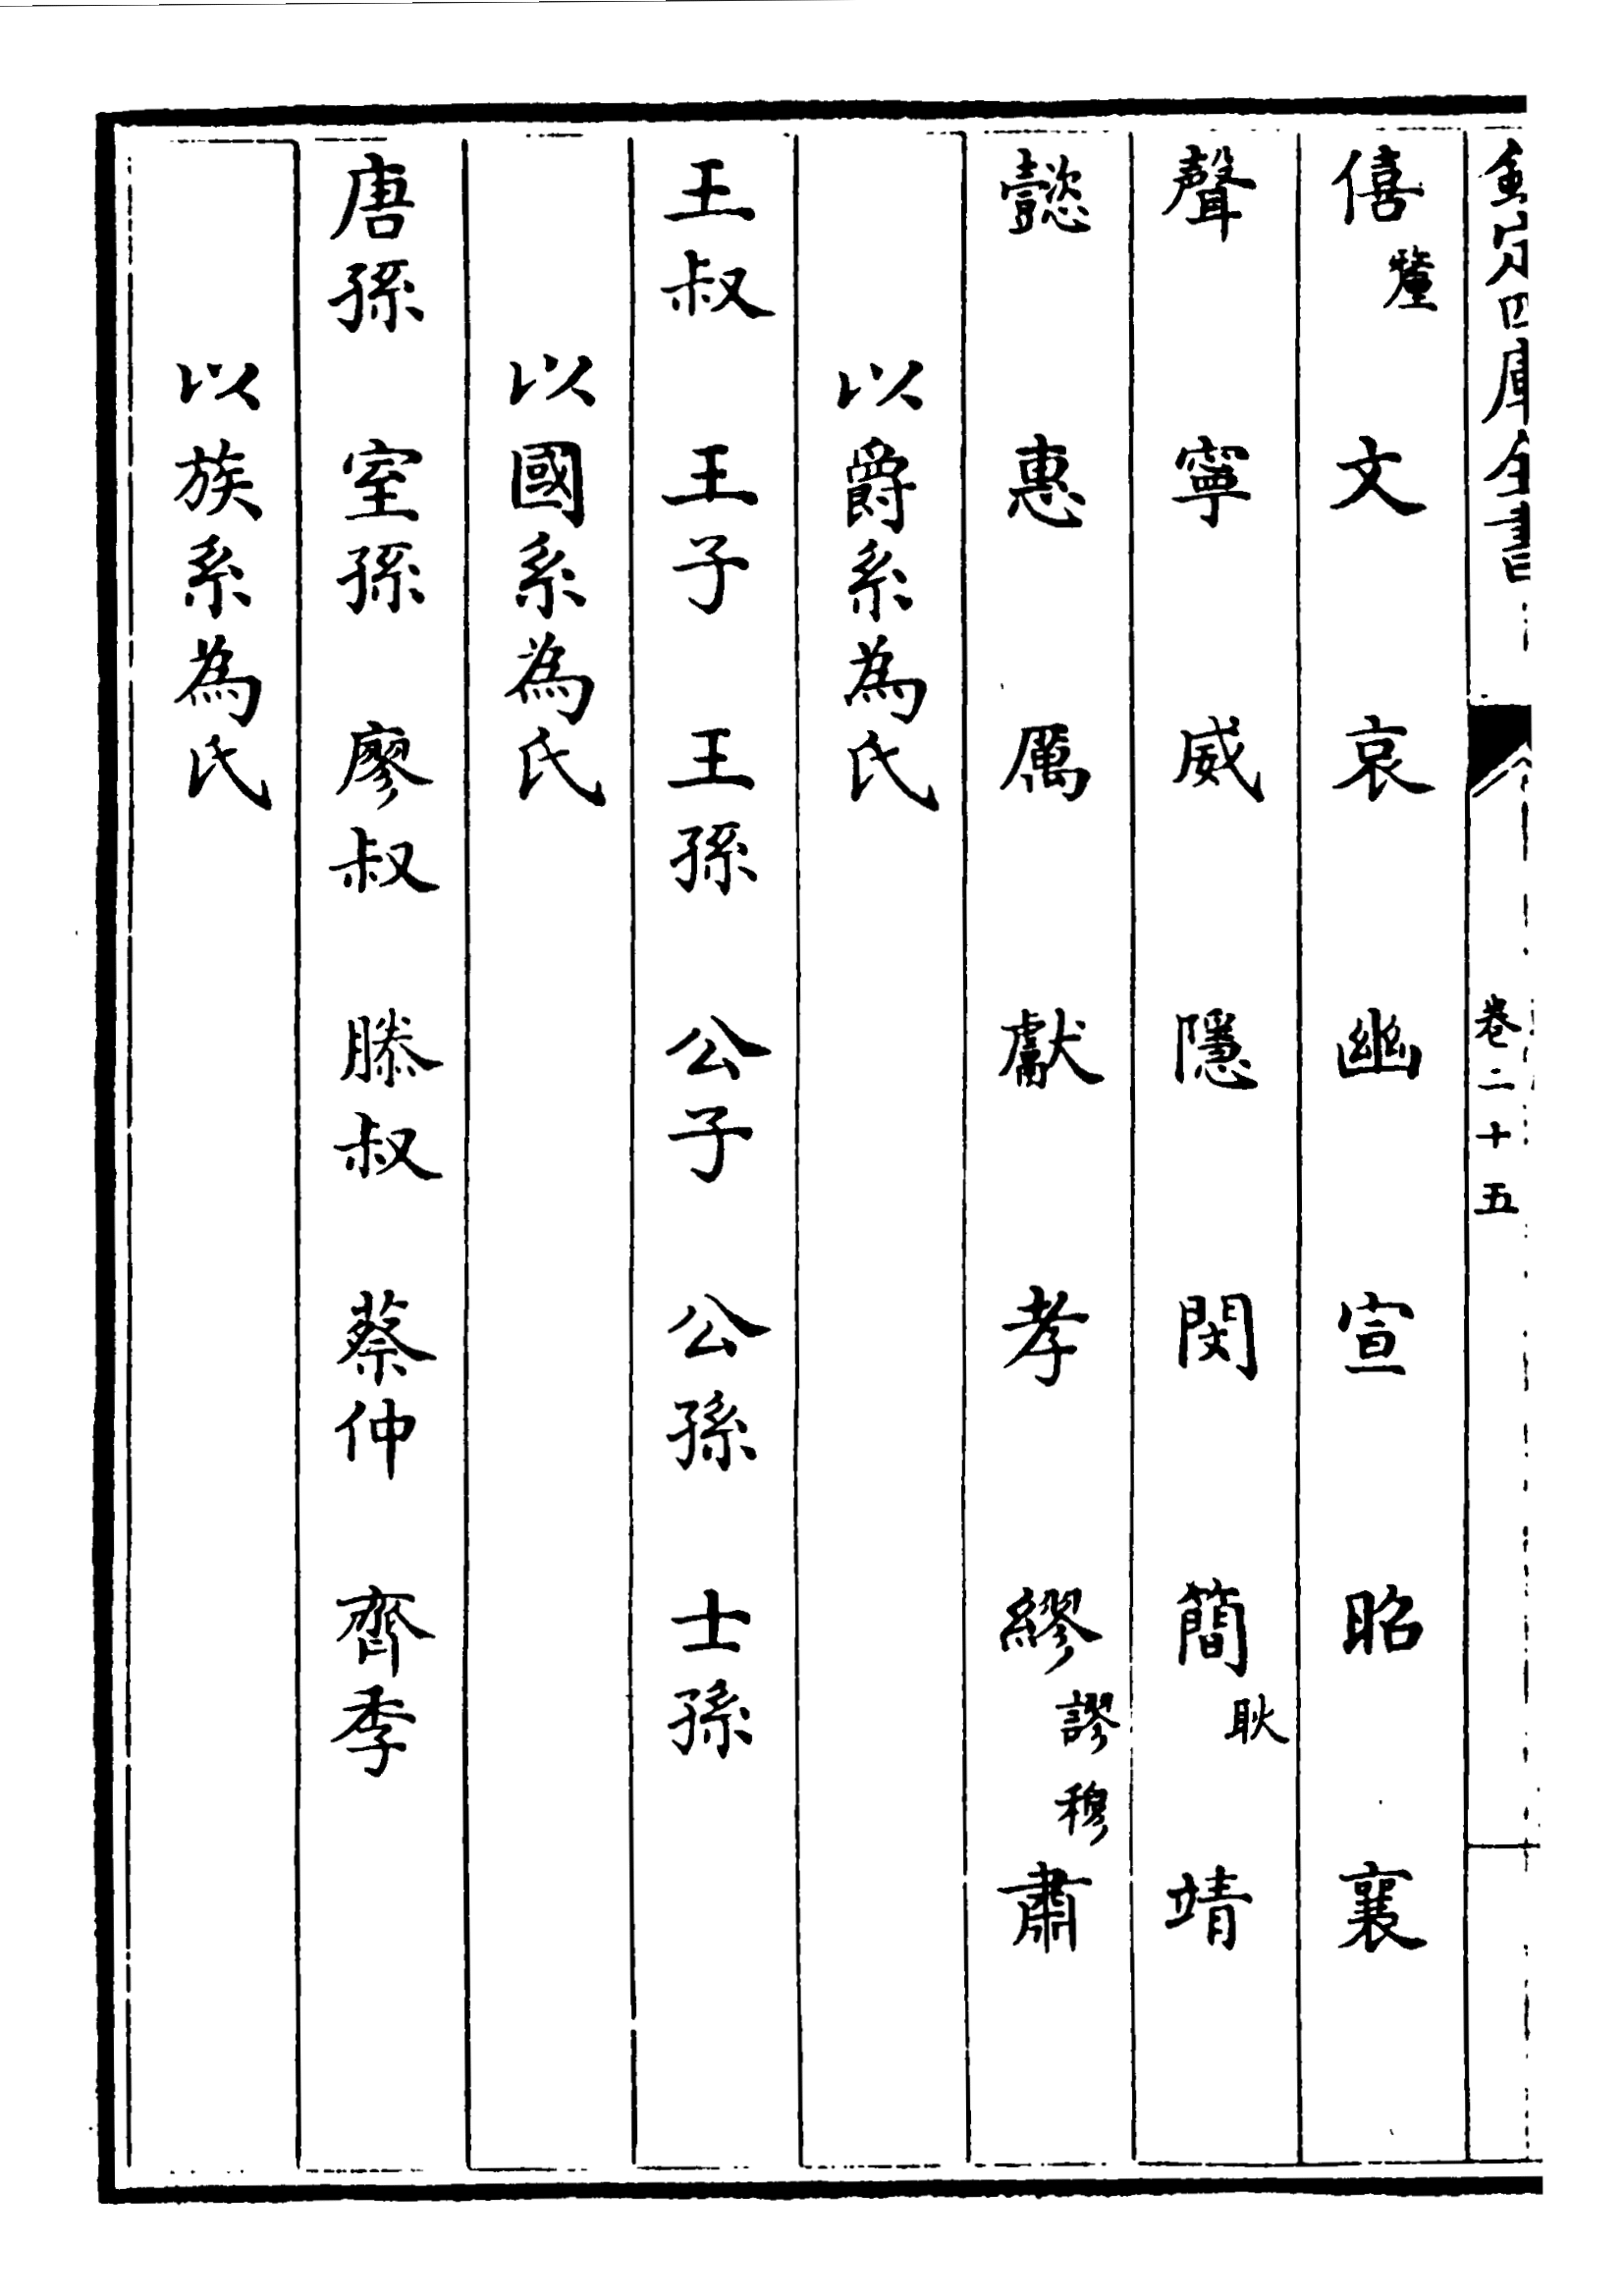 欽定四庫全書
卷二十五
僖釐 文 哀 幽 宣 昭 襄
聲 寧 威 隱 閔 簡耿 靖
懿 惠 厲 獻 孝 繆謬穆 肅
以爵系為氏
王叔 王子 王孫 公子 公孫 士孫
以國系為氏
唐孫 室孫 廖叔 滕叔 蔡仲 齊季
以族系為氏